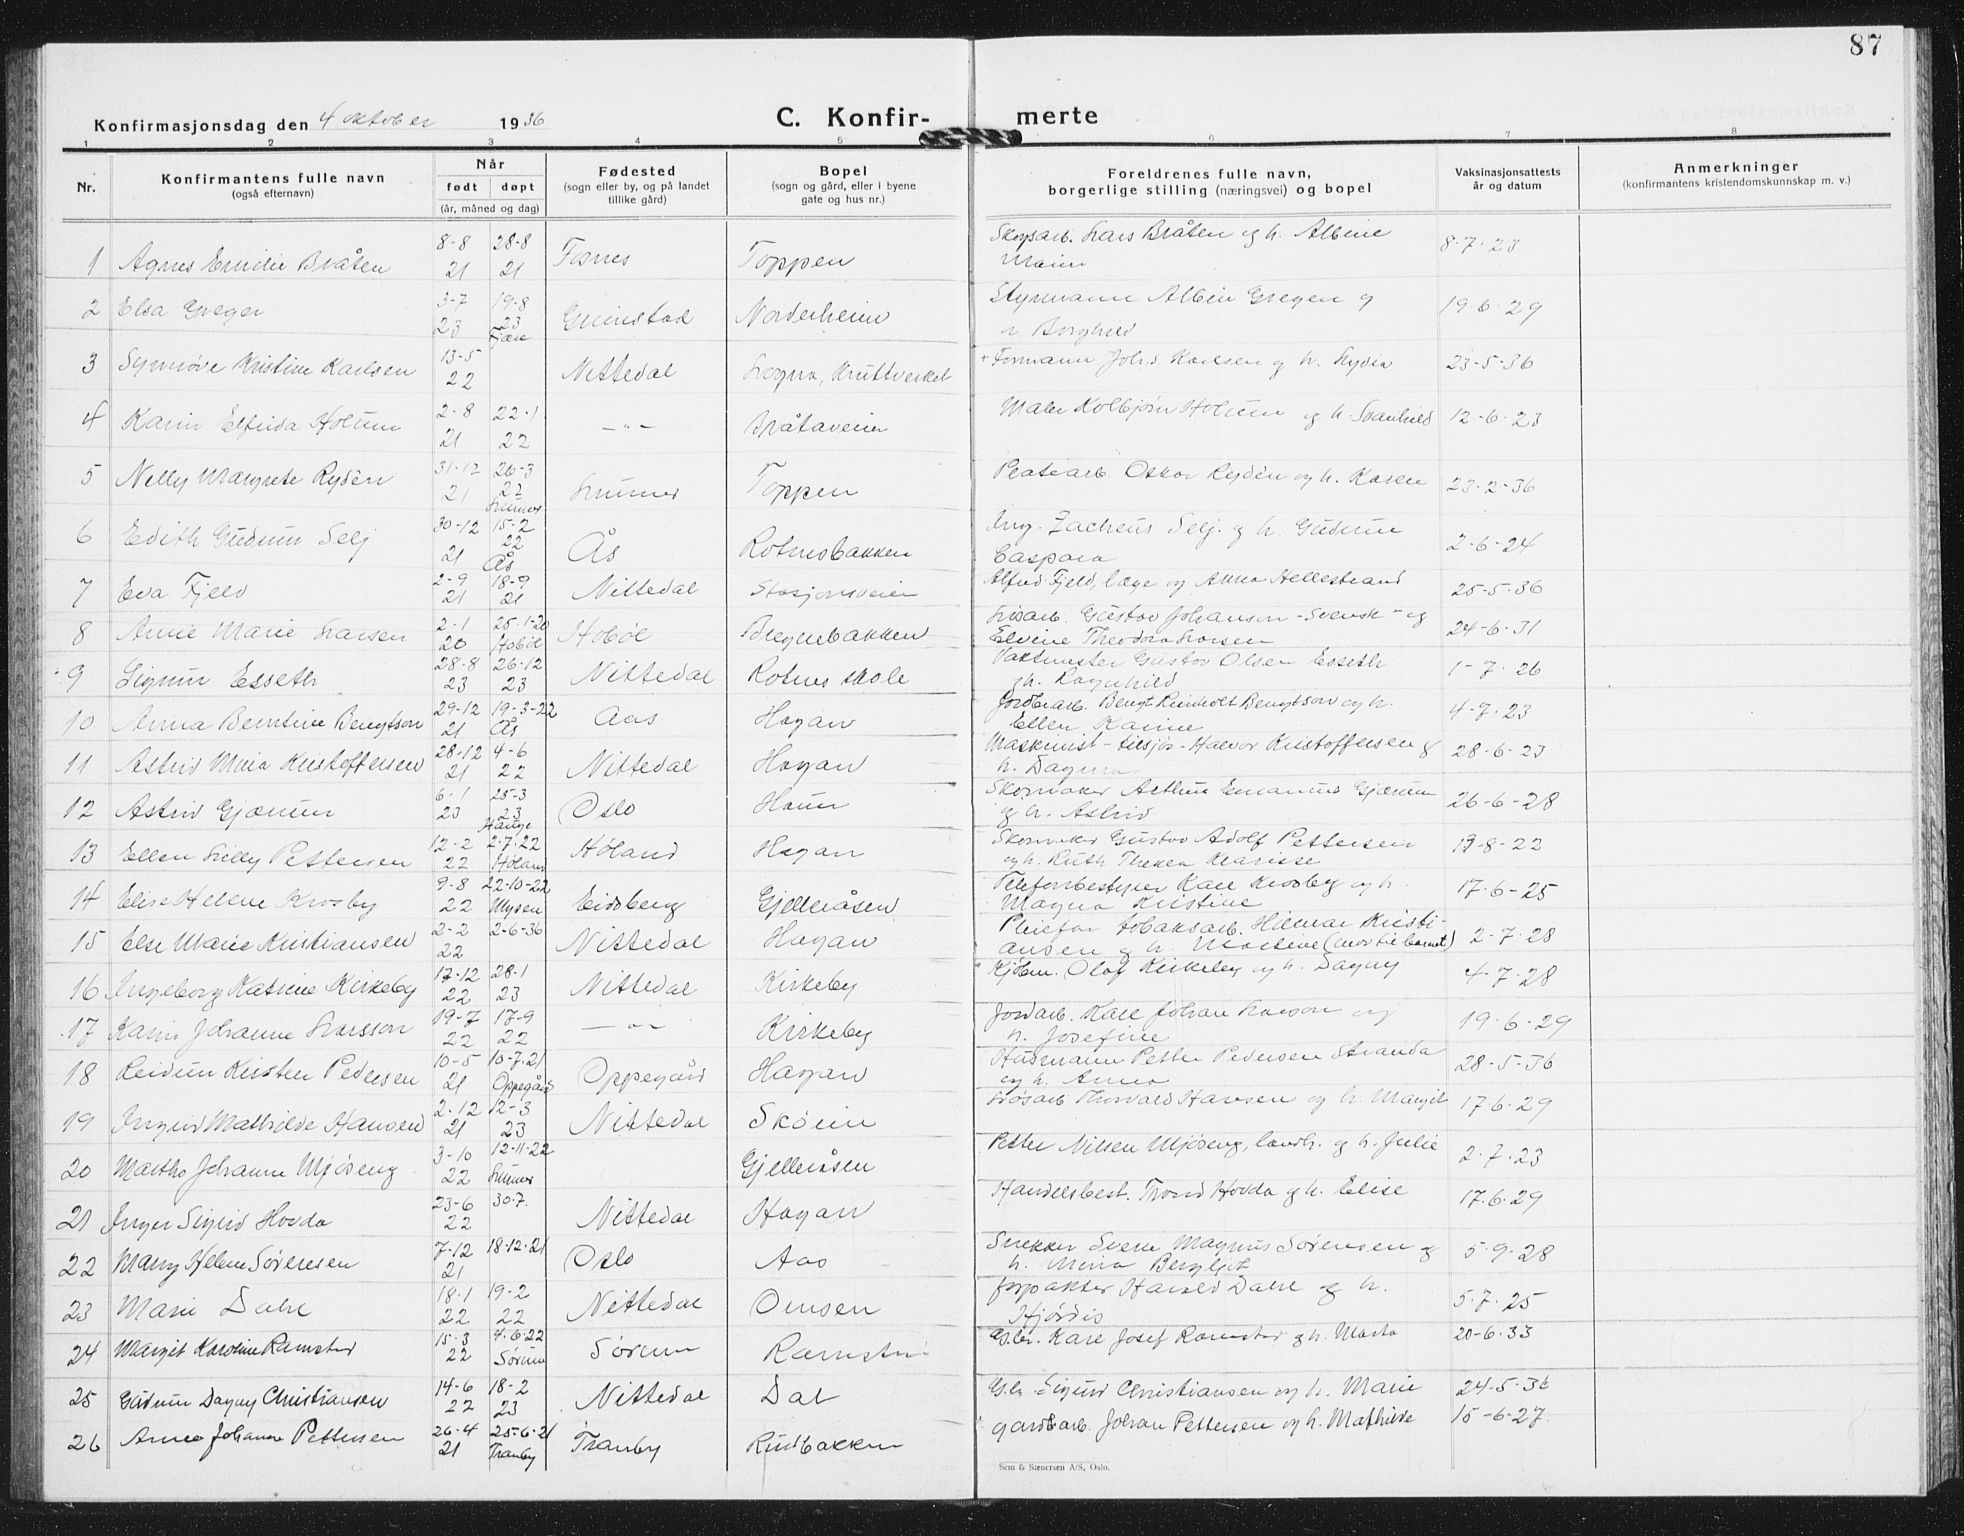 87
Konfirmasjonsdag den 4 oktober 1936
C. Konfir- merte
1 2 3 4 5 6 7 8
Nr. Konfirmantens fulle navn (også efternavn) Når født døpt (år, måned og dag) Fødested (sogn eller by, og på landet tillike gård) Bopel (sogn og gård, eller i byene gate og hus nr.) Foreldrenes fulle navn, borgerlige stilling (næringsvei) og bopel Vaksinasjonsattests år og datum Anmerkninger (konfirmantens kristendomskunnskap m. v.)
1 Agnes Emilie Bråten 8-8 21 28-8 21 Toppen Skogsarb. Lars Bråten og h. Albine 8-7-23
2 Elsa Greger 3-7 23 19-8 23 Fjære Grimstad Norderheim Styrmann Albin Greger og h. Borghild 19-6-29
3 Synnøve Kristine Karlsen 13-5 22 Nittedal Kruttverket Formann Johs Karlsen og h. Lydia 23-5-36
4 Karin Elfrida Holum 2-8 21 22-1 22 —"— Bråtaveien Maler Kolbjørn Holum og h. Svanhild 12-6-23
5 Nelly Margrete Rydèn 31-12 21 26-3 22 Lunner Lunner Toppen Oskar Rydèn og h. Karen 23-2-36
6 Edith Gudrun Selj 30-12 21 15-2 22 Ås Ås Rotnesbakken Ing. Zacheus Selj. og h. Gudrun Caspara 2-6-24
7 Eva Fjeld 2-9 21 18-9 21 Nittedal Stasjonsveien Alfred Fjeld, læge og Anna Hellestrand 25-5-36
8 Anne Marie Larsen 2-1 20 25-1-20 Hobøl Hobøl Gustav Johanson - Svensk - og Elvine Theodora Larsen 24-6-31
9 Sigrun Esseth 28-8 23 26-12 23 Nittedal Rotnes skole Vaktmester Gustav Olsen Esseth og h. Ragnhild 1-7-26
10 Anna Berntine Bengtson 29-12 21 19-3-22 Ås Aas Hagan Jordbrarb. Bengt Reinholt Bengtson og h. Ellen Karine 4-7-23
11 Astrid Maria Kristoffersen 28-12 21 4-6 22 Nittedal Hagan Maskinist - tilsjøs - Halvor Kristoffersen og h. Dagny 28-6-23
12 Astrid Gjærum 6-1 23 25-3 23 Hauge Oslo Haun Skomaker Arthur Emanuel Gjærum og h. Astrid 26-6-28
13 Ellen Lilly Pettersen 12-2 22 2-7-22 Høland Høland Hagan Skomaker Gustav Adolf Pettersen og h. Ruth Thekla Klarisse 13-8-22
14 Elise Helene Krosby 9-8 22 22-10-22 Mysen Eidsberg Gjelleråsen Telefonbestyrer Karl Krosby og h. Magna Kristine 17-6-25
15 Else Marie Kristiansen 2-2 22 2-6-36 Nittedal Hagan Pleiefar tobaksarb. Hilmar Kristiansen og h. Martine (mor til barnet) 2-7-28
16 Ingeborg Katrine Kirkeby 17-12 22 28-1 23 Nittedal Kirkeby Kjøbm. Olaf Kirkeby og h. Dagny 4-7-28
17 Karin Johanne Larsson 19-7 22 17-9 22 —"— Kirkeby Jordarb. Karl Johan Larson og h. Josefine 19-6-29
18 Reidun Kirsten Pedersen 10-5 21 10-7-21 Oppegård Oppegård Hagan Husmann Petter Pedersen Stranda og h. Anna 28-5-36
19 Ingrid Mathilde Hansen 2-12 21 12-3 23 Nittedal Skøien Thorvald Hansen og h. Margit 17-6-29
20 Martha Johanne Mjøseng 3-10 22 12-11-22 Lunner Gjelleråsen Petter Nilsen Mjøseng, landh. og h. Julie 2-7-23
21 Inger Sigrid Hovda 23-6 22 30-7. Nittedal Hagan Handelsbest. Trond Hovda og h. Elise 17-6-29
22 Mary Helene Sørensen 7-12 21 18-12-21 Oslo Aas Snekker Sverre Magnus Sørensen og h. Mina Bergljot 5-9-28
23 Marie Dahl 18-1 22 19-2 22 Nittedal Forpakter Harald Dahl og h. Hjørdis 5-7-25
24 Margit Karoline Ramstad 15-3 22 7-6-22 Sørum Sørum Gbr. Karl Josef Ramstad og h. Marta 20-6-33
25 Gudrun Dagny Christiansen 14-6 22 18-2 23 Nittedal Dal Gbr. Sigurd Christiansen og h. Marie 24-5-36
26 Anne Johanne Pettersen 26-4 21 25-6-21 Tranby Tranby Rudbakken Gårdsarb. Johan Pettersen og h. Mathilde 15-6-27
Sem & Stenersen A/S, Oslo.